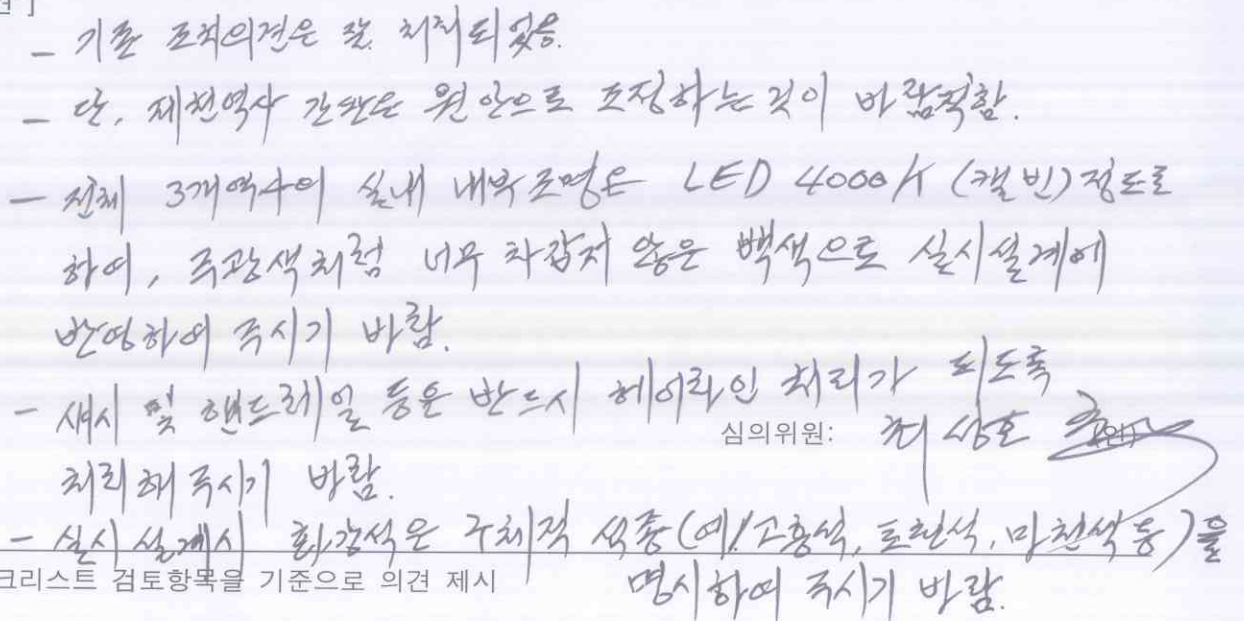 견 ]
- 기존 조치의견은 잘 처리되었음.
- 단, 제천역사 간판은 원안으로 조정하는 것이 바람직함.
- 전체 3개역사의 실내 내부조명은 LED 4000K (캘빈)정도로
하여, 주광색처럼 너무 차갑지 않은 백색으로 실시설계에
반영하여 주시기 바람.
- 샤시 및 핸드레일 등은 반드시 헤어라인 처리가 되도록
심의위원: 최상호 (인)
처리해주시기 바람.
- 실시 설계시 화강석은 구체적 석종(예/고흥석, 포천석, 마천석 등)을
크리스트 검토항목을 기준으로 의견 제시
명시하여 주시기 바람.